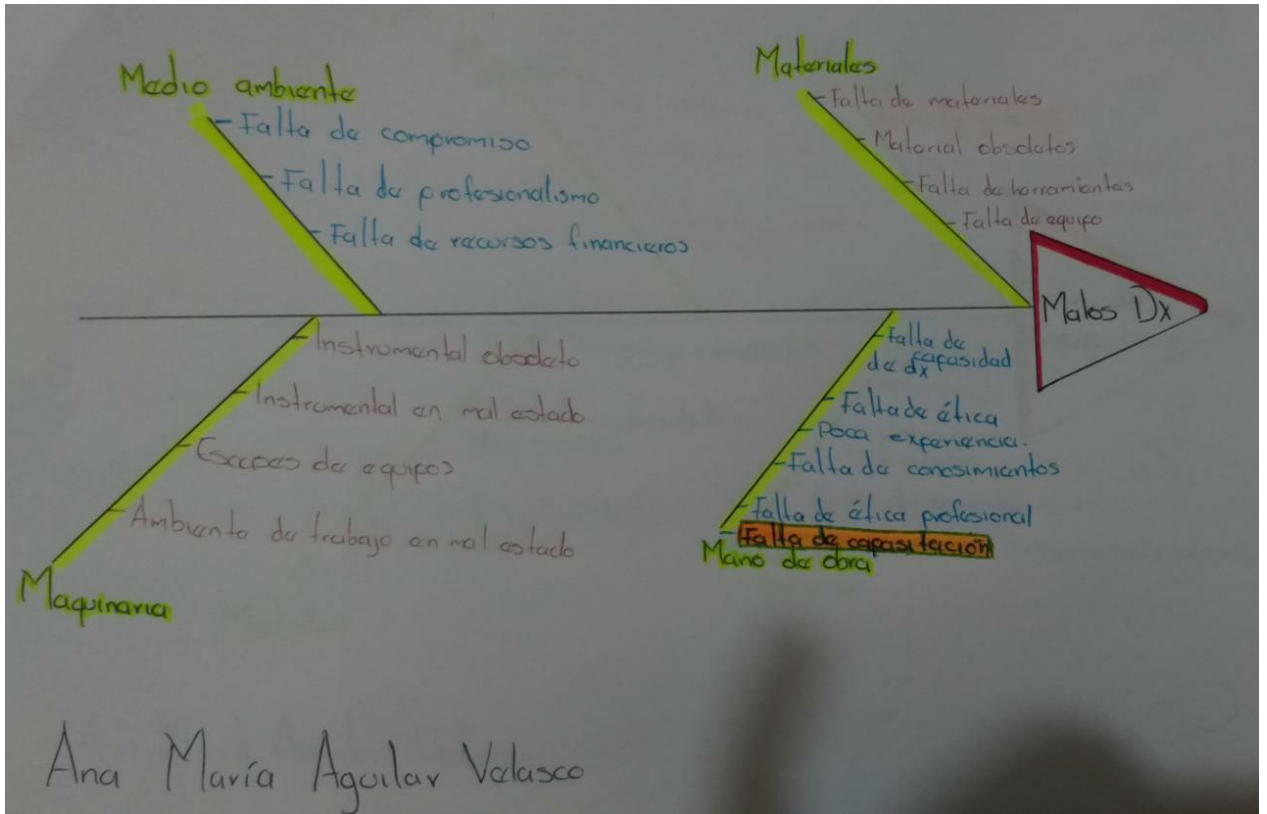 Medio ambiente
- Falta de compromiso
- Falta de profesionalismo
- Falta de recursos financieros
Materiales
- Falta de materiales
- Material obsoletos
- Falta de herramientas
- Falta de equipo
Malos Dx
- Instrumental obsoleto
- Instrumental en mal estado
- Escapes de equipos
- Ambiente de trabajo en mal estado
Maquinaria
- Falta de capasidad
de dx
- Falta de ética
- Poca experiencia.
- Falta de conosimientos
- Falta de ética profesional
- Falta de capasitación
Mano de obra
Ana María Aguilar Velasco